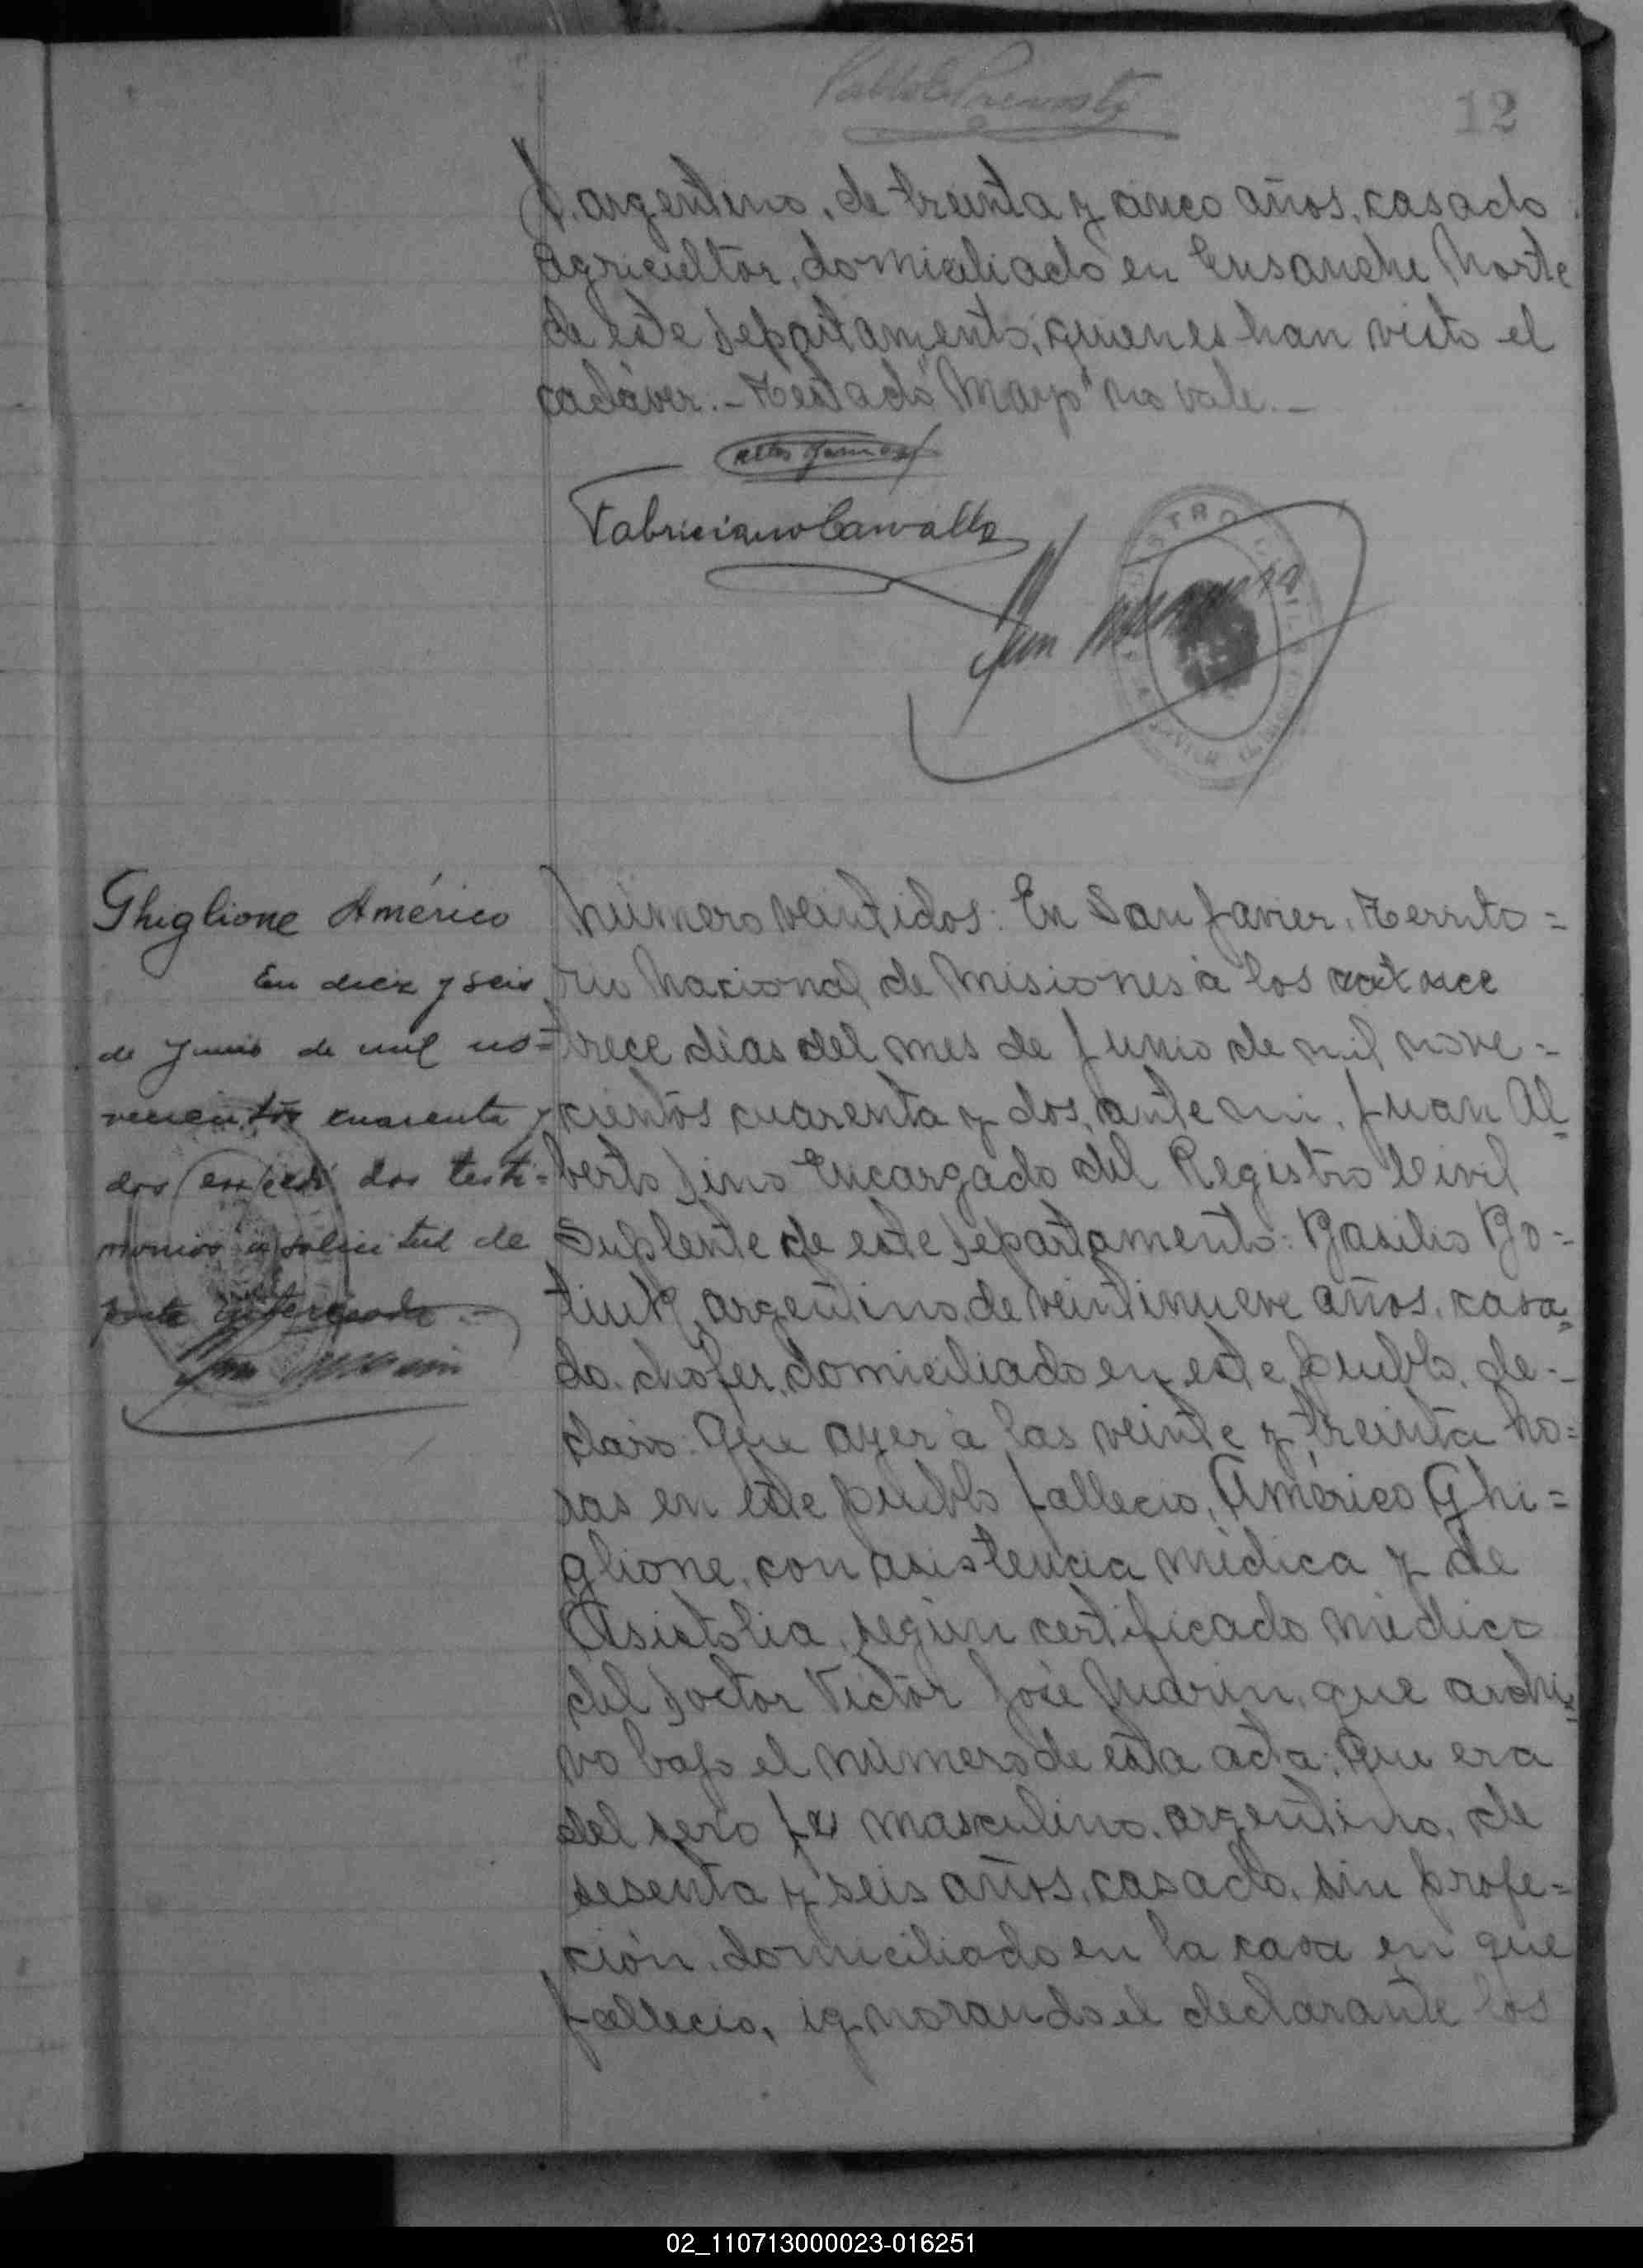 12
argentino, de treinta y cinco años, casado
agricultor, domiciliado en Ensanche Norte
de este departamento, quienes han visto el
cadáver.- Testado "Mayo" no vale.-
Fabriciano Carvallo
Ghiglione Américo
En diez y seis
de Junio de mil no=
vecientos cuarenta y
dos expedí dos testi=
monios a solicitud de
parte interesada.-
Número veintidos: En San Javier, Territo=
rio Nacional de Misiones à los catorce
trece dias del mes de Junio de mil nove=
cientos cuarenta y dos, ante mi, Juan Al=
berto Encargado del Registro Civil
Suplente de este departamento: Basilio Bo=
tiuk, argentino, de veintinueve años, casa=
do, chofer, domiciliado en este pueblo, de-
claró: Que ayer à las veinte y treinta ho=
ras en este pueblo falleció, Américo Ghi=
glione, con asistencia médica y de
Asistolia, según certificado médico
del doctor Victor José Marin, que archi=
vo bajo el número de esta acta: Que era
del sexo fe masculino, argentino, de
sesenta y seis años, casado, sin profe=
ción, domiciliado en la casa en que
falleció, ignorando el declarante los
02_110713000023-016251